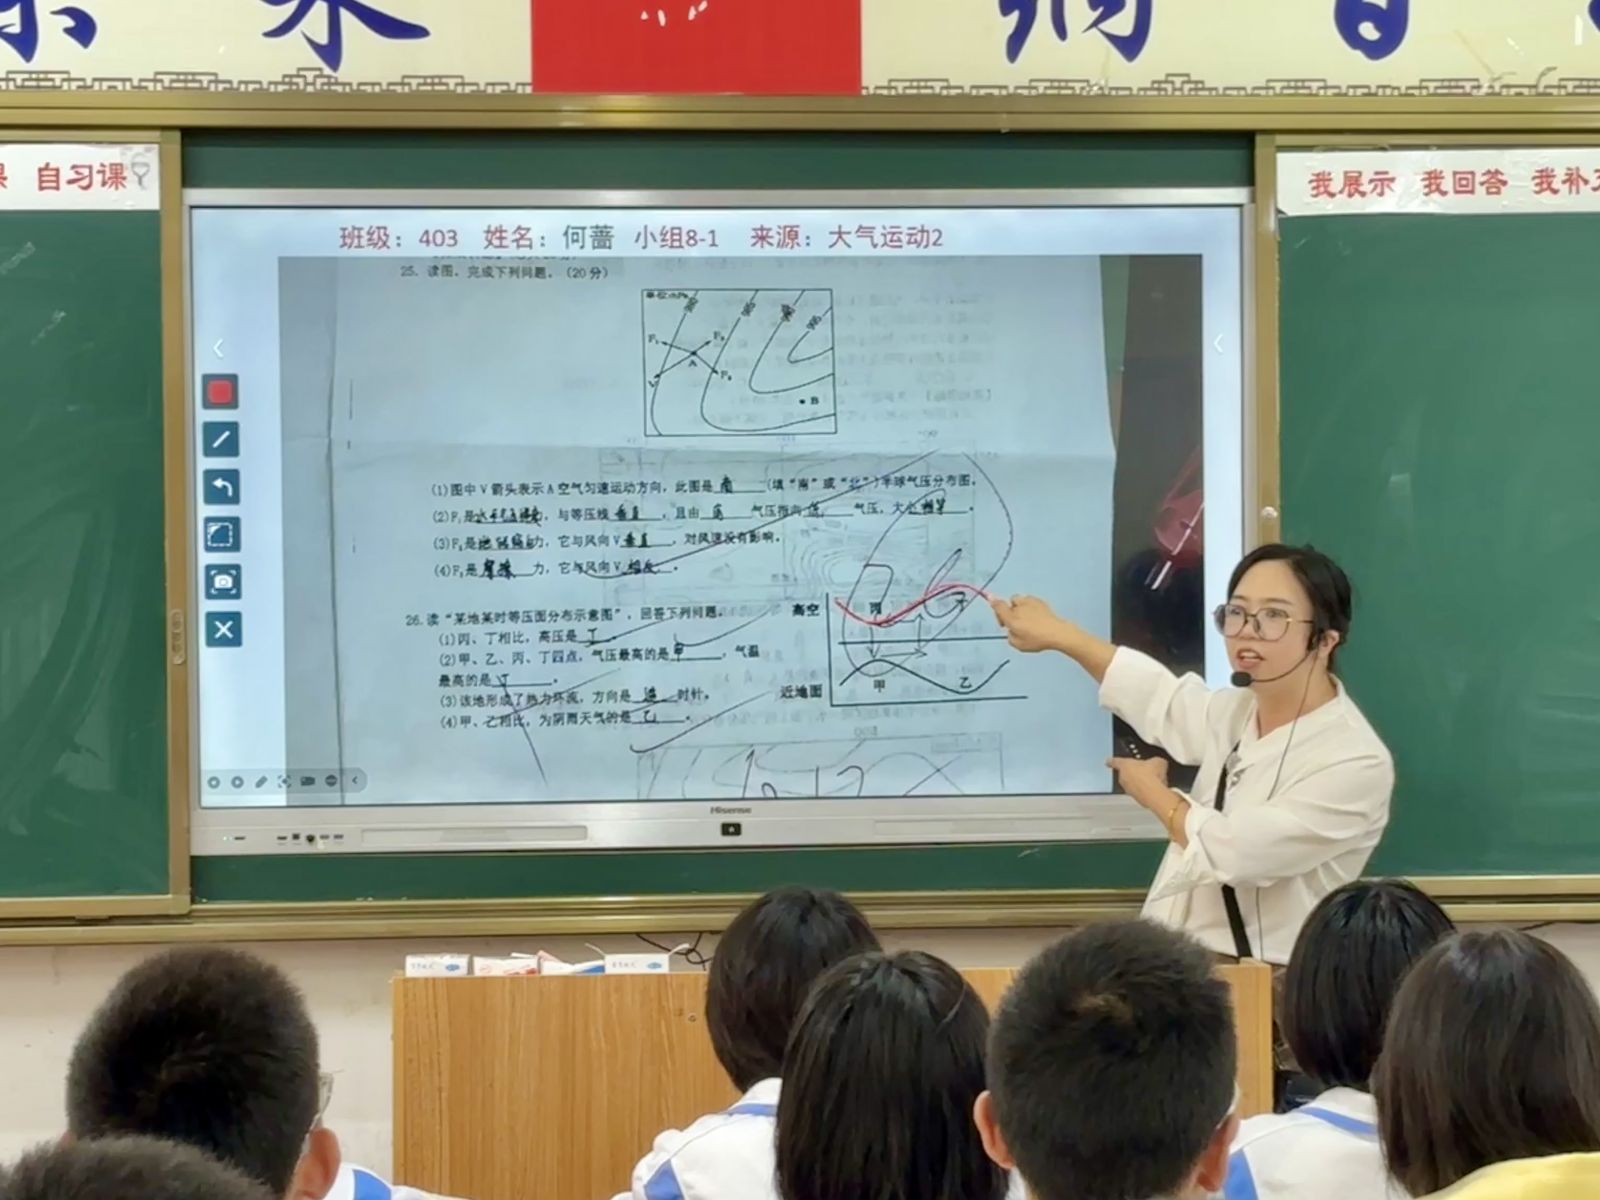 自习课
我展示 我回答 我补充
班级：403 姓名：何蔷 小组8-1 来源：大气运动2
25. 读图，完成下列问题。（20分）
F₁
F₂
A
F₃
B
(1)图中V箭头表示A空气匀速运动方向，此图是 南 （填“南”或“北”）半球气压分布图。
(2)F₁是水平气压梯度，与等压线垂直，且由 高 气压指向 低 气压，大小相等。
(3)F₂是地转偏向力，它与风向V垂直，对风速没有影响。
(4)F₃是摩擦力，它与风向V相反。
26. 读“某地某时等压面分布示意图”，回答下列问题。
(1)丙、丁相比，高压是 丁
(2)甲、乙、丙、丁四点，气压最高的是 甲 ，气温
最高的是 丁 。
(3)该地形成了热力环流，方向是 逆 时针。
(4)甲、乙相比，为阴雨天气的是 乙 。
高空
丙
近地面
甲
乙
Hisense